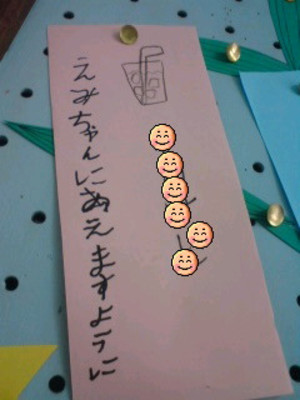 えみちゃんにあえますように